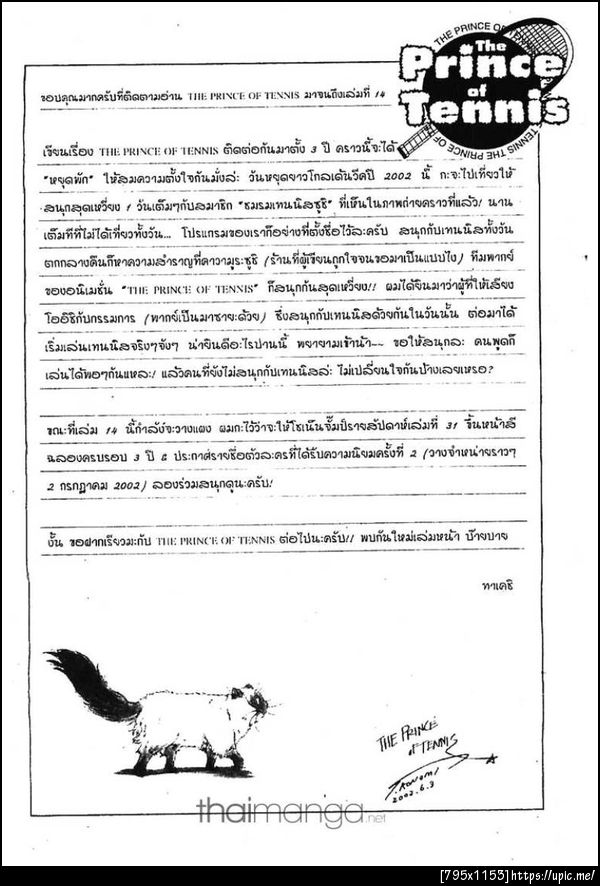 THE PRINCE OF TENNIS
The
Prince
of
Tennis
THE PRINCE OF TENNIS
ขอบคุณมากครับที่ติดตามอ่าน THE PRINCE OF TENNIS มาจนถึงเล่มที่ 14
เขียนเรื่อง THE PRINCE OF TENNIS ติดต่อกันมาตั้ง 3 ปี คราวนี้จะได้
"หยุดพัก" ให้สมความตั้งใจกันมั่งล่ะ วันหยุดยาวโกลเด้นวีคปี 2002 นี้ กะจะไปเที่ยวให้
สนุกสุดเหวี่ยง 1 วันเต็มๆกับสมาชิก "ชมรมเทนนิสซูชิ" ที่เห็นในภาพถ่ายคราวที่แล้ว! นาน
เต็มทีที่ไม่ได้เที่ยวทั้งวัน... โปรแกรมของเราก็อย่างที่ตั้งชื่อไว้ละครับ สนุกกับเทนนิสทั้งวัน
ตกกลางคืนก็หาความสำราญที่คาวามุระซูชิ (ร้านที่ผู้เขียนถูกใจจนขอมาเป็นแบบไง) ทีมพากย์
ของอนิเมชั่น "THE PRINCE OF TENNIS" ก็สนุกกันสุดเหวี่ยง!! ผมได้ยินมาว่าผู้ที่ให้เสียง
โออิชิกับกรรมการ (พากย์เป็นมาซายะด้วย) ซึ่งสนุกกับเทนนิสด้วยกันในวันนั้น ต่อมาได้
เริ่มเล่นเทนนิสจริงๆจังๆ น่ายินดีอะไรปานนี้ พยายามเข้าน้า~~ ขอให้สนุกละ คนพูดก็
เล่นได้พอๆกันแหละ! แล้วคนที่ยังไม่สนุกกับเทนนิสล่ะ ไม่เปลี่ยนใจกันบ้างเลยเหรอ?
ขณะที่เล่ม 14 นี้กำลังจะวางแผง ผมกะไว้ว่าจะให้โชเน็นจั๊มป์รายสัปดาห์เล่มที่ 31 ขึ้นหน้าสี
ฉลองครบรอบ 3 ปี & ประกาศรายชื่อตัวละครที่ได้รับความนิยมครั้งที่ 2 (วางจำหน่ายราวๆ
2 กรกฎาคม 2002) ลองร่วมสนุกดูนะครับ!
งั้น ขอฝากเรียวมะกับ THE PRINCE OF TENNIS ต่อไปนะครับ!! พบกันใหม่เล่มหน้า บ๊ายบาย
ทาเคชิ
THE PRINCE
OF TENNIS
T.KONOMI
2002.6.3
thaimanga.net
[795x1153]https://upic.me/